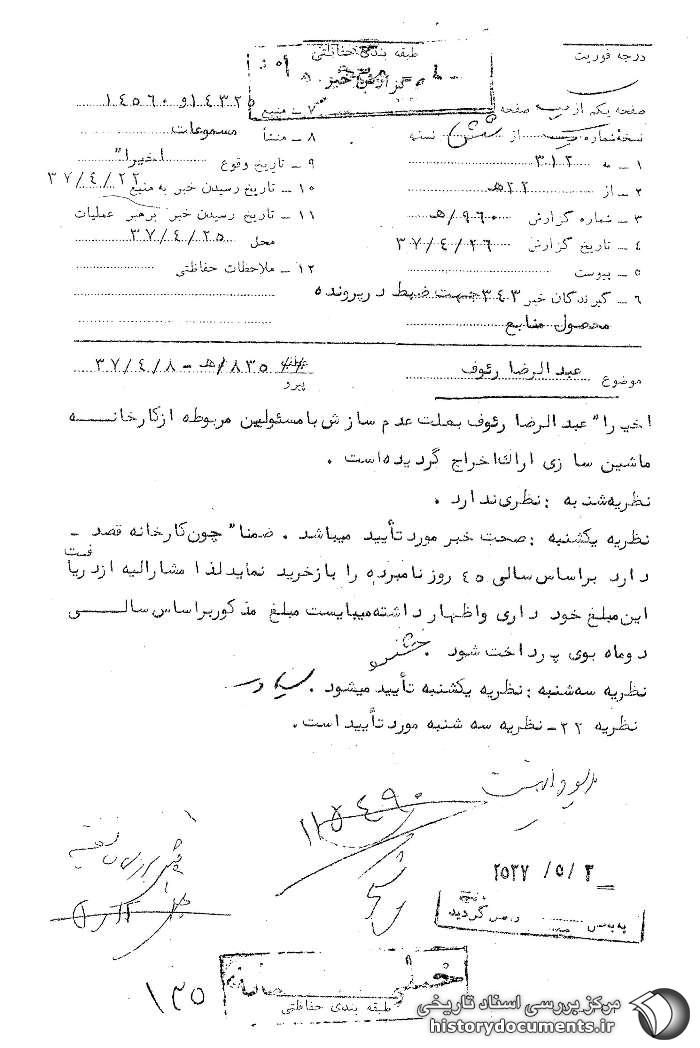 درجه فوریت
طبقه بندی حفاظتی
گزارش خبر
صفحه یکم از صفحه
نسخه شماره از شش نسخه
۱ ـ به ۳۱۲
۲ ـ از ۲۲ هـ
۳ ـ شماره گزارش ۹۶۰/هـ
۴ ـ تاریخ گزارش ۳۷/۴/۲۶
۵ ـ پیوست
۶ ـ گیرندگان خبر ۳۴۳ جهت ضبط در پرونده
محصول منابع
۷ ـ منبع ۱۴۳۲۵ و ۱۴۵۶۰
۸ ـ منشأ مسموعات
۹ ـ تاریخ وقوع اخیرا"
۱۰ ـ تاریخ رسیدن خبر به منبع ۳۷/۴/۲۲
۱۱ ـ تاریخ رسیدن خبر برهبر عملیات
محل ۳۷/۴/۲۵
۱۲ ـ ملاحظات حفاظتی
موضوع عبدالرضا رئوف
پیرو ۸۳۵/هـ - ۳۷/۴/۸
اخیرا" عبدالرضا رئوف بعلت عدم سازش با مسئولین مربوطه از کارخانه
ماشین سازی اراک اخراج گردیده است .
نظریه شنبه : نظری ندارد .
نظریه یکشنبه : صحت خبر مورد تأیید میباشد . ضمنا" چون کارخانه قصد ـ
دارد براساس سالی ۴۵ روز نامبرده را بازخرید نماید لذا مشارالیه از دریافت
این مبلغ خود داری و اظهار داشته میبایست مبلغ مذکور براساس سالی
دوماه بوی پرداخت شود .
نظریه سه شنبه : نظریه یکشنبه تأیید میشود .
نظریه ۲۲ ـ نظریه سه شنبه مورد تأیید است .
۱۱۵۴۹۰
۲۵۳۷ /۵/۲
گردید
طبقه بندی حفاظتی
۱۳۵
مرکز بررسی اسناد تاریخی
historydocuments.ir